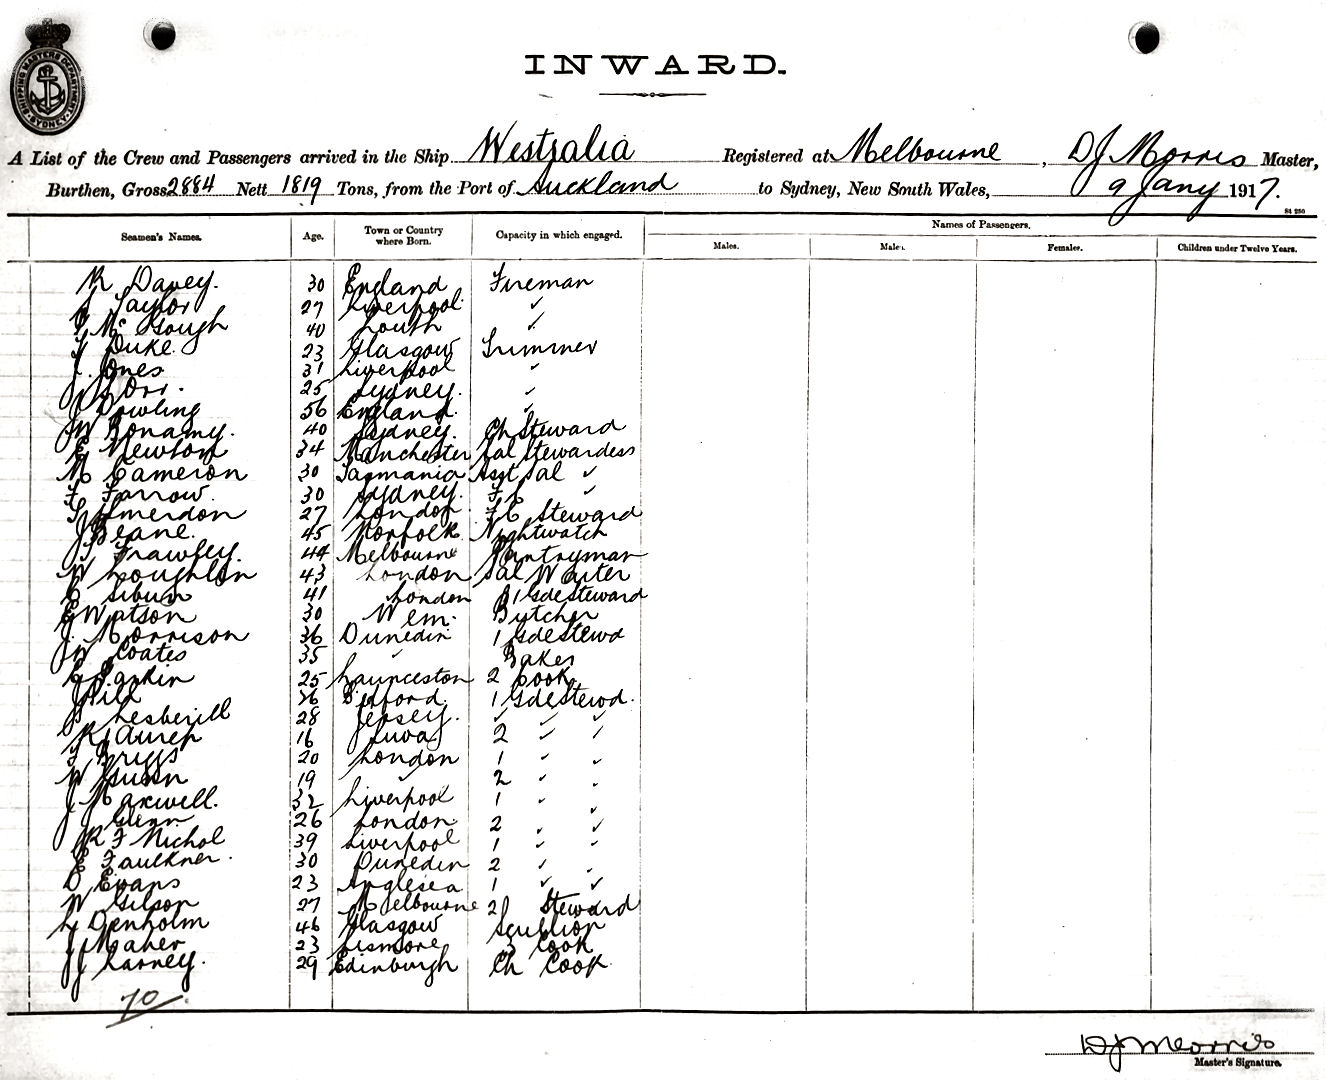 SHIPPING MASTERS DEPARTMENT SYDNEY
INWARD.
A List of the Crew and Passengers arrived in the Ship Westralia Registered at Melbourne, D J Morris Master,
Burthen, Gross 2884 Nett 1819 Tons, from the Port of Auckland to Sydney, New South Wales, 9 Jany 1917.
Names of Passengers.
Seamen's Names. Age. Town or Country where Born. Capacity in which engaged. Males. Males. Females. Children under Twelve Years.
R Davey. 30 England Fireman
Taylor 27 Liverpool ✓
McGough 40 Louth ✓
Duke. 23 Glasgow Trimmer
Jones 31 Liverpool ✓
Orr. 25 Sydney. ✓
Dowling 56 England. ✓
W Bonamy. 40 Sydney. Ch Steward
E Newton 34 Manchester Sal Stewardess
M Cameron 30 Tasmania Asst Sal ✓
F Farrow. 30 Sydney. ✓
Smerdon 27 London Steward
J Beane. 45 Norfolk Nightwatch
Frawley. 44 Melbourne Pantryman
W Loughlin 43 London Sal Waiter
41 London Gde Steward
E Watson 30 Wem. Butcher
J. Morrison 36 Dunedin 1 Gde Stewd
W Coates 35 ✓ Baker
Larkin 25 Launceston 2 Cook
36 1 Gde Stewd.
28 Jersey. ✓ ✓ ✓
16 Suva 2 ✓ ✓
Briggs 20 London 1 ✓ ✓
W 19 ✓ 2 ✓ ✓
J Maxwell. 32 Liverpool 1 ✓ ✓
J Glenn 26 London 2 ✓ ✓
R F Nichol 39 Liverpool 1 ✓ ✓
E Faulkner. 30 Dunedin 2 ✓ ✓
D Evans 23 Anglesea 1 ✓ ✓
W Gilson 27 Melbourne 2 Steward
L Denholm 46 Glasgow Scullion
J Maher 23 Lismore 3 Cook
J Larney. 29 Edinburgh Ch Cook
70
D J Morris
Master's Signature.